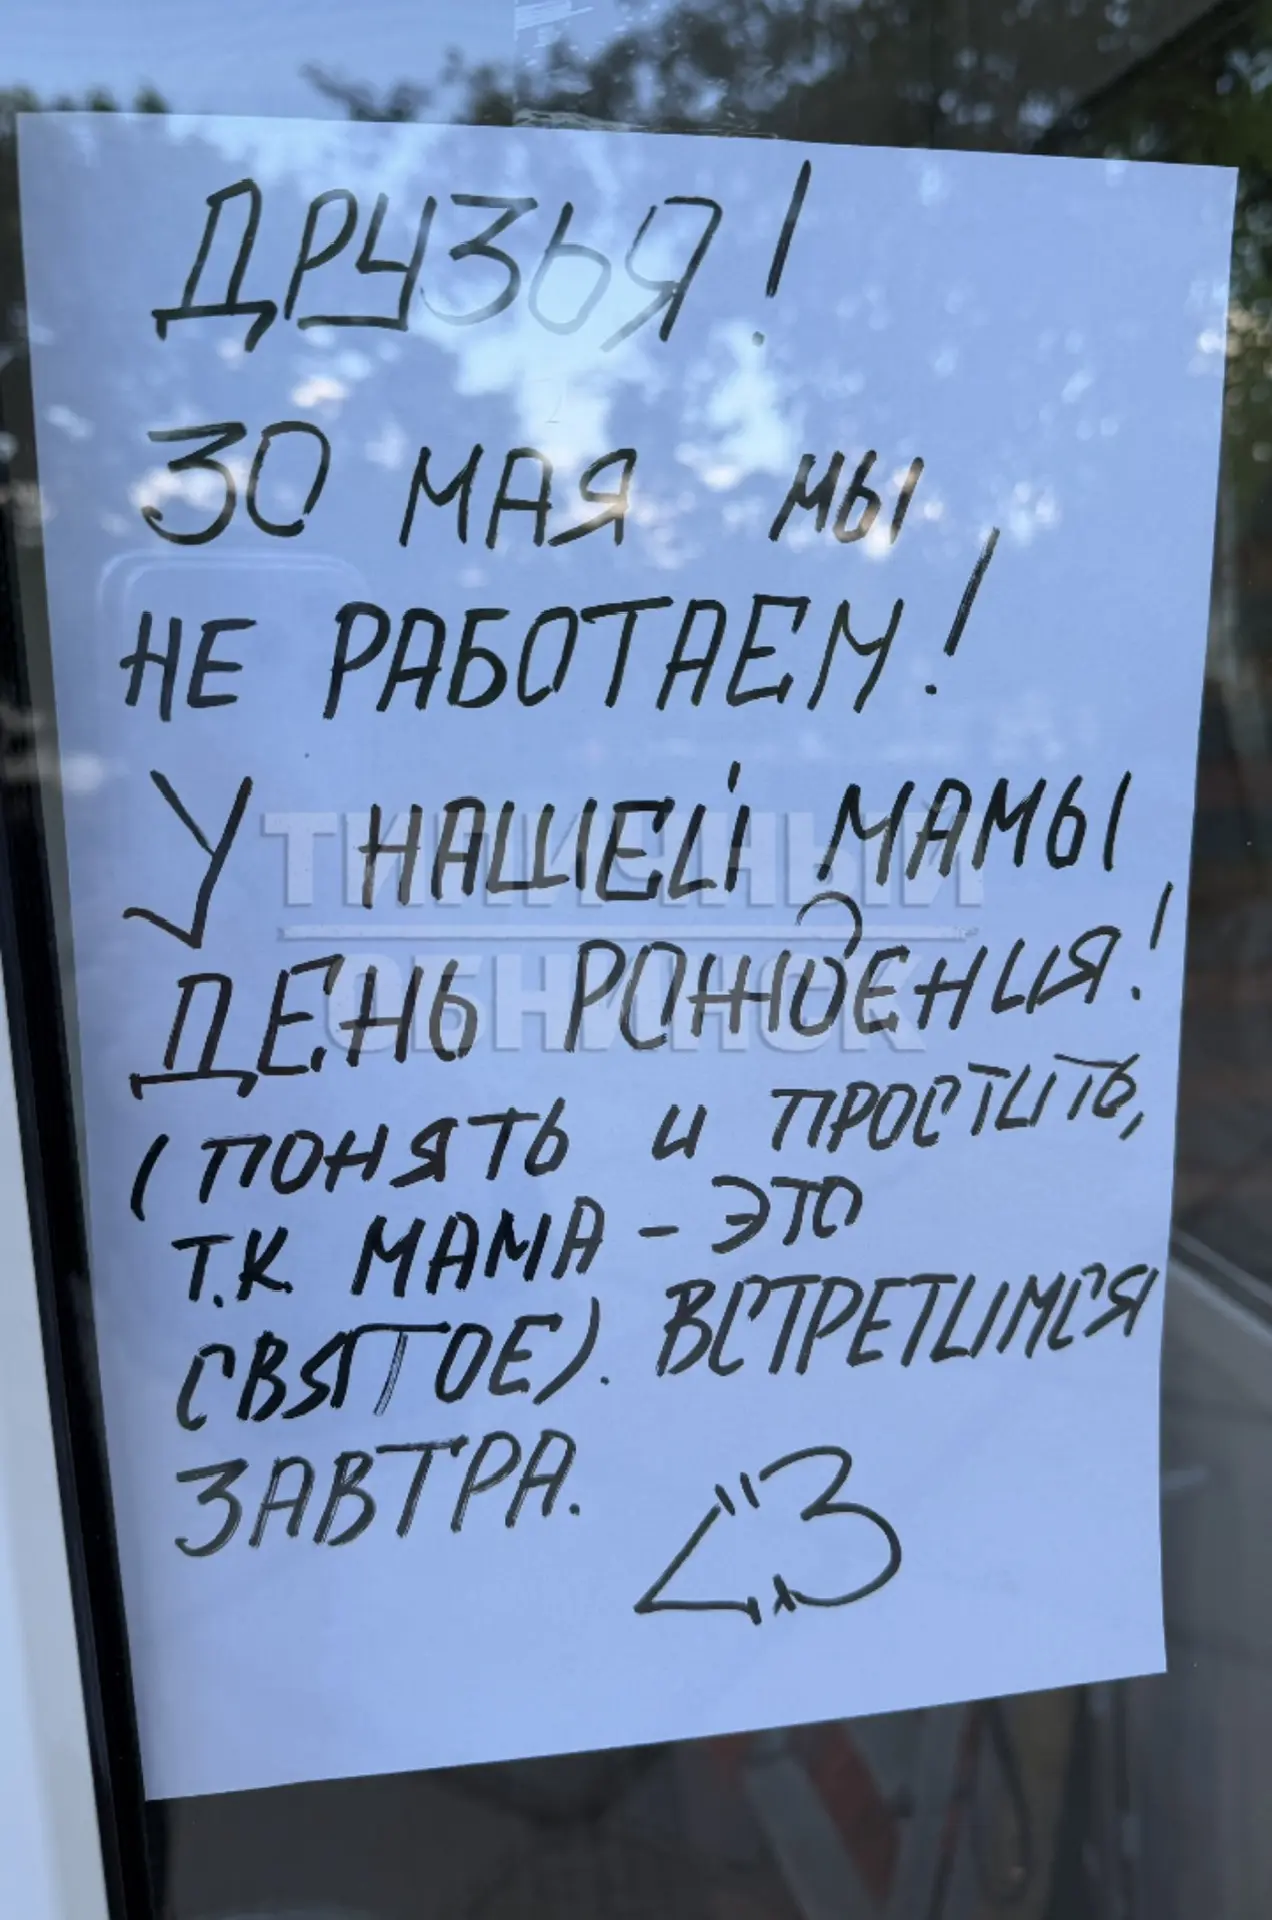 ДРУЗЬЯ!
30 МАЯ МЫ
НЕ РАБОТАЕМ!
У НАШЕЙ МАМЫ
ДЕНЬ РОЖДЕНИЯ!
(ПОНЯТЬ И ПРОСТИТЬ,
Т.К. МАМА - ЭТО
СВЯТОЕ). ВСТРЕТИМСЯ
ЗАВТРА.
ТИПИЧНЫЙ
ОБНИНСК